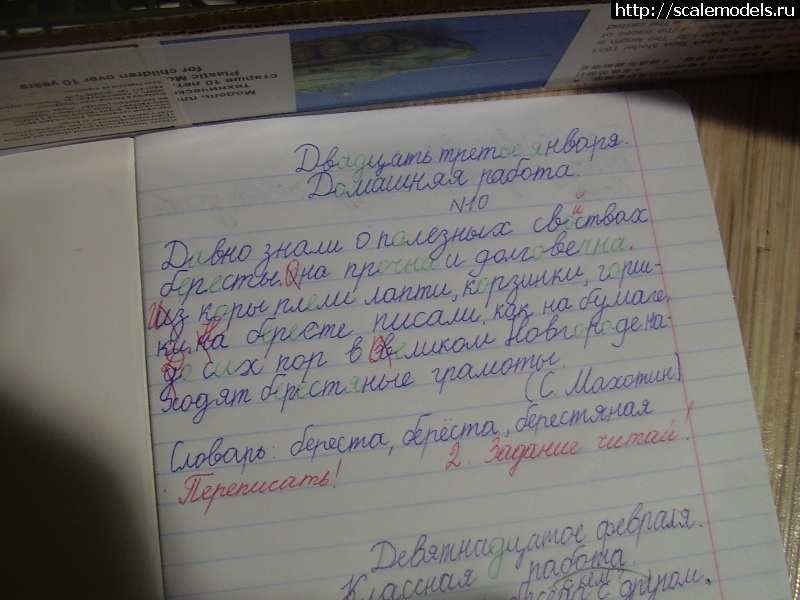 http://scalemodels.ru
for children over 10 years
Plastic Mo
старше 10 лет.
технически
Модель пл
Двадцать третое января.
Домашняя работа.
N10
Давно знали о полезных свойствах
бересты. Она прочна и долговечна.
Из коры плели лапти, корзинки, горш-
ки. На бересте писали, как на бумаге.
До сих пор в Великом Новгороде на-
ходят берестяные грамоты.
(С. Махотин)
Словарь: береста, берёста, берестяная
Переписать! 2. Задание читай!
Девятнадцатое февраля.
Классная работа.
с другом.